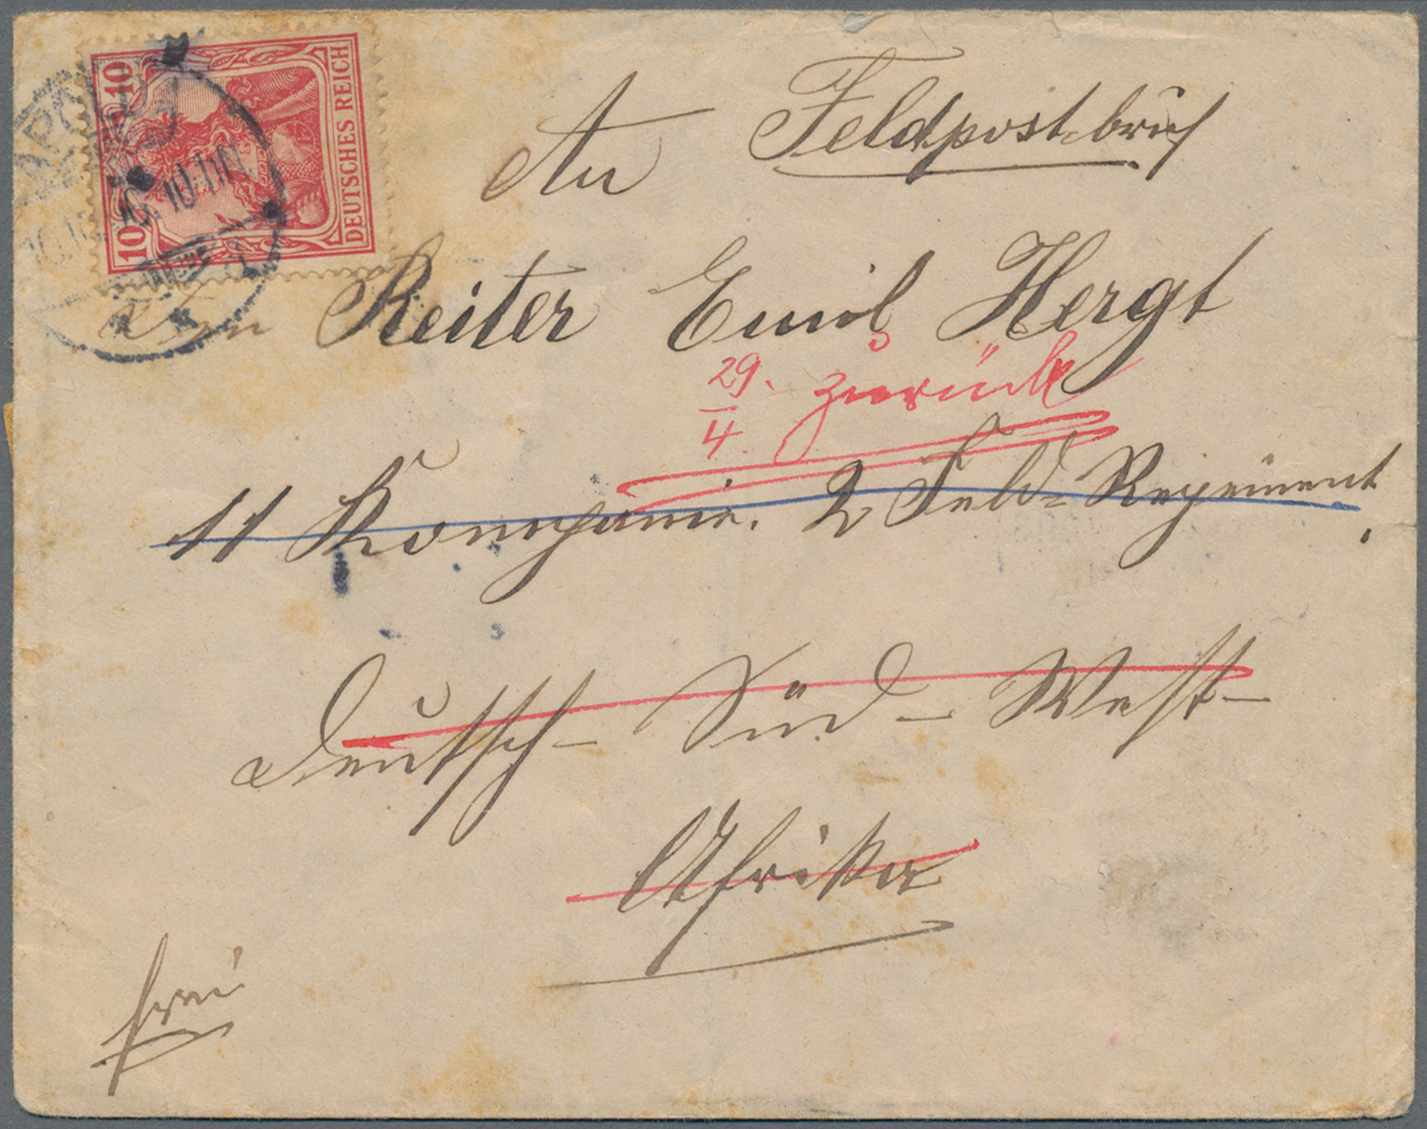 10 10
DEUTSCHES REICH
Feldpost=brief
An
den Reiter Emil Hergt
29. zurück
4.
11 Kompanie. 2 Feld=Regeiment,
Deutsch- Süd - West-
Afrika
frei